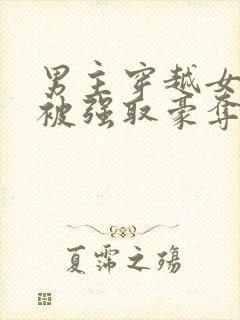 男主穿越女
被强取豪夺
夏霈之殇